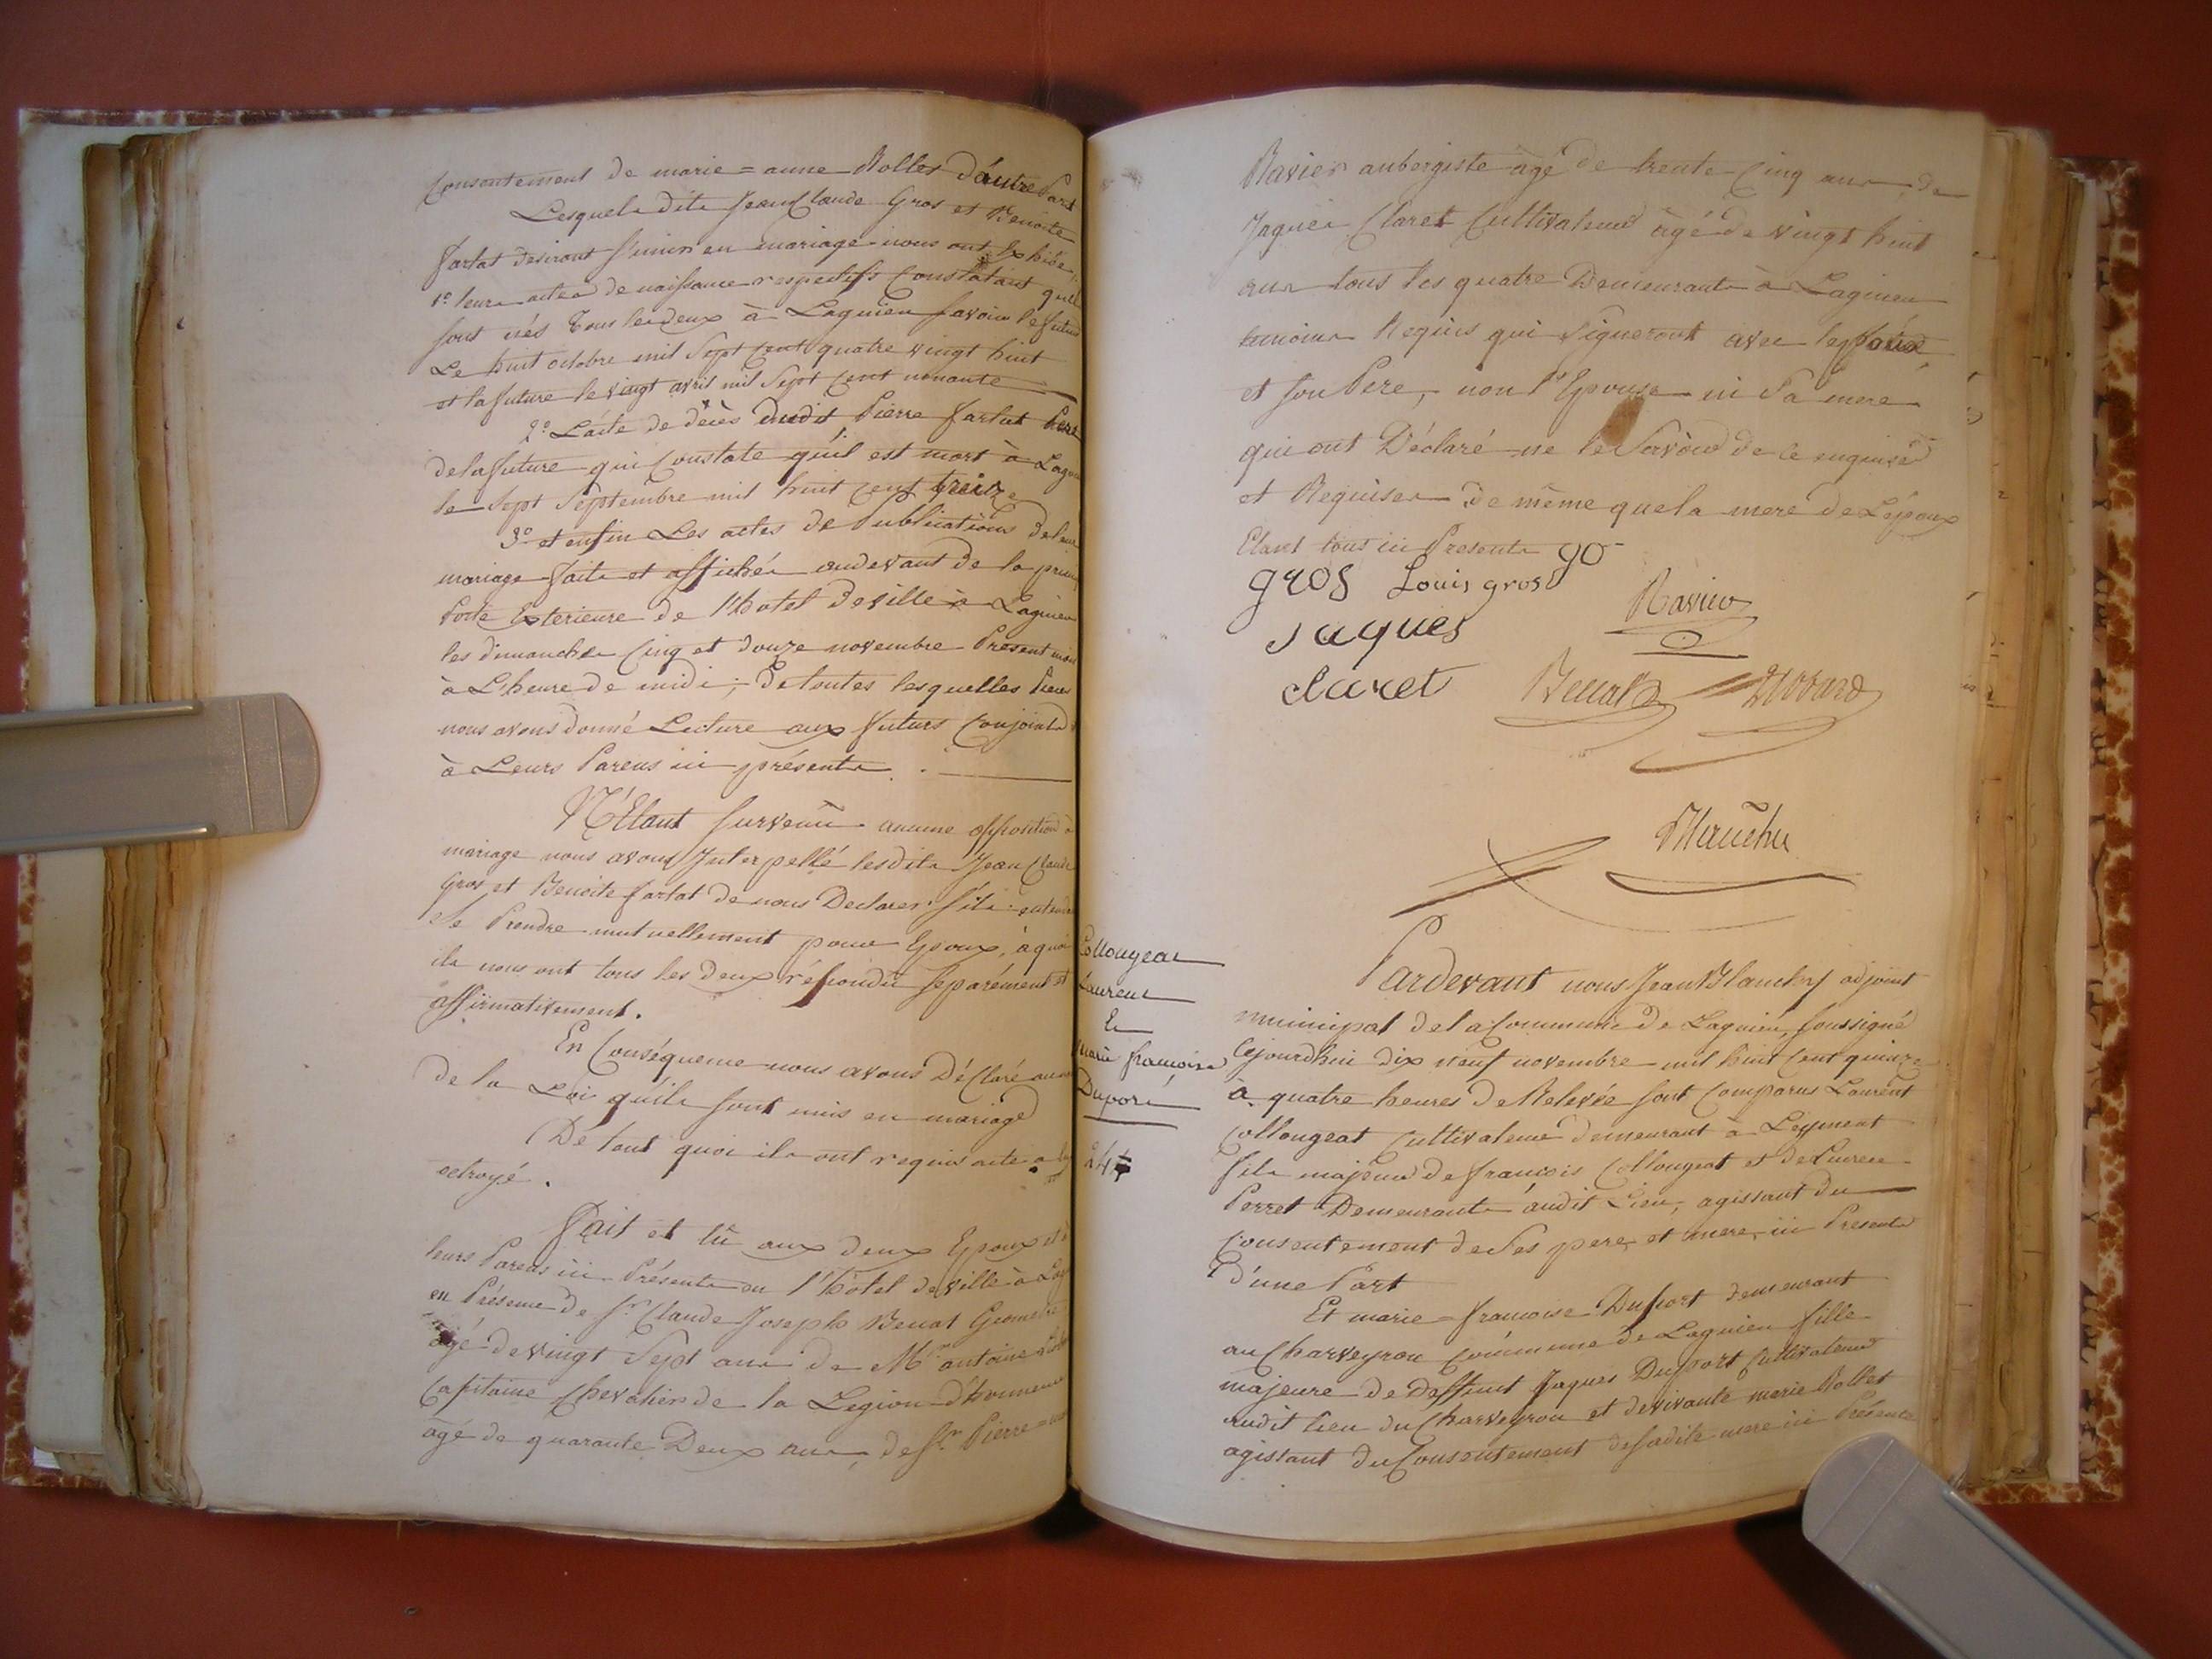 Consentement de marie = anne Rollet d'autre Part
Lesquels dits Jean Claude Gros et Benoite
fartat desirant s'unir en mariage nous ont Exhibé
1.º leurs actes de naissance respectifs Constatant qu'ils
sont nés Tous les deux à Lagnieu savoir le futur
Le huit octobre mil Sept Cent quatre vingt huit
et la future le vingt avril mil Sept Cent nonante
2.º L'acte de décès dudit Pierre fartat Pere
de la future qui Constate qu'il est mort à
le Sept Septembre mil huit Cent treize
3.º et enfin Les actes de Publications de leur
mariage faites et affichés audevant de la
Porte Exterieure de l'hotel de ville à Lagnieu
les dimanches Cinq et douze novembre Present mois
à L'heure de midi; De toutes lesquelles Pieces
nous avons donné Lecture aux futurs Conjoints
à Leurs Parens ici présents.
N'Etant survenu aucune opposition
mariage nous avons Interpellé lesdits Jean Claude
Gros et Benoite fartat de nous Declarer s'ils
Se Prendre mutuellement pour Epoux, à quoi
ils nous ont tous les deux répondu séparément et
affirmativement.
En Conséquence nous avons Déclaré au
de la Loi qu'ils sont unis en mariage
De tout quoi ils ont requis acte
octroyé.
Fait et lû aux deux Epoux et à
leurs Parens ici Présents en l'hôtel de ville à
en Présence de S.r Claude Joseph Benat Geometre
agé de vingt Sept ans de M.r antoine
Capitaine Chevalier de la Legion d'honneur
agé de quarante Deux ans, de S.r Pierre
Ravier aubergiste agé de trente Cinq ans, de
Jaques Claret Cultivateur agé de vingt huit
ans tous les quatre Demeurants à Lagnieu
temoins Requis qui Signeront avec
et son Pere, non l'Epouse ni Sa mere
qui ont Déclaré ne le Savoir de ce enquises
et Requises de même que la mere de L'époux
Etant tous ici Presents
gros Louis gros
Ravier
Jaques
claret Benat
Blanchy
Collongeat
Laurent
Et
marie francoise
Duport
Pardevant nous Jean Blanchy adjoint
municipal de la Commune de Lagnieu, soussigné
Cejourdhui dix neuf novembre mil huit Cent quinze
à quatre heures de Relevée sont Comparus Laurent
Collongeat Cultivateur demeurant à Leyment
fils majeur de françois Collongeat et de
Perret Demeurants audit Lieu, agissant du
Consentement de Ses pere et mere, ici Presents
d'une Part
Et marie = francoise Duport demeurant
au Charveyron Commune de Lagnieu fille
majeure de Deffunt Jaques Duport Cultivateur
audit Lieu du Charveyron et de vivante marie Rollet
agissant du Consentement de sadite mere ici Présente